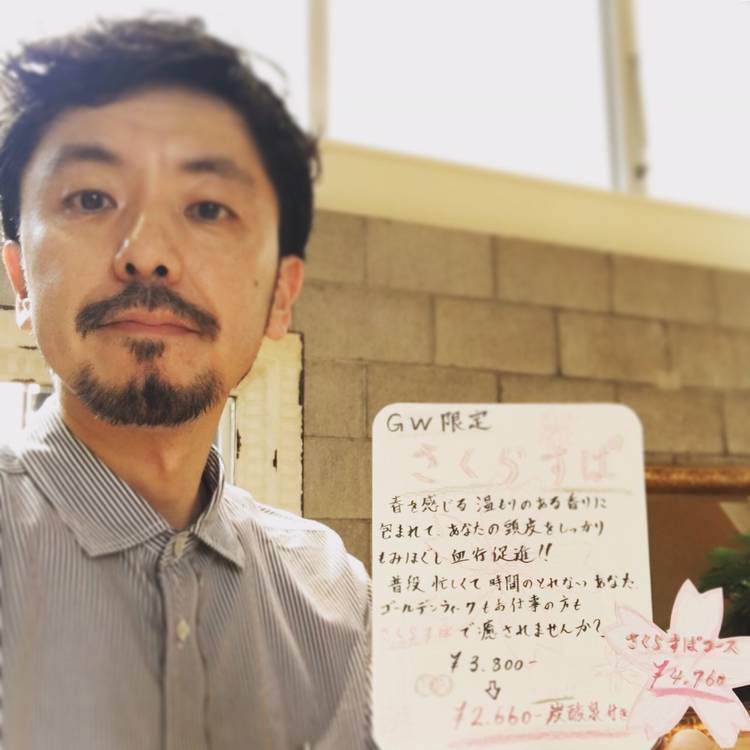 GW限定
さくらすぱ
春を感じる温もりのある香りに
包まれて、あなたの頭皮をしっかり
もみほぐし血行促進!!
普段忙しくて時間のとれないあなた、
ゴールデンウィークもお仕事の方も
さくらすぱで癒されませんか?
¥3.800-
⇩
¥2.660-炭酸泉付き
さくらすぱコース
¥4.760